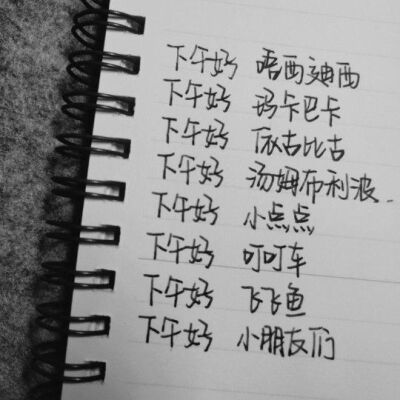 下午好 唔西迪西
下午好 玛卡巴卡
下午好 依古比古
下午好 汤姆布利波.
下午好 小点点
下午好 叮叮车
下午好 飞飞鱼
下午好 小朋友们